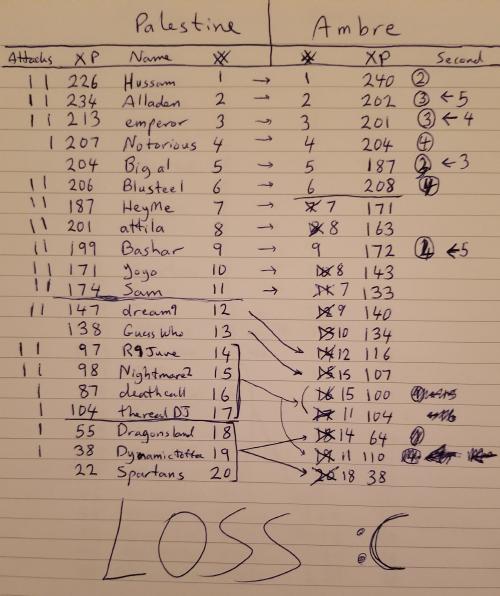 Palestine Ambre
Attacks XP Name XP Second
|| 226 Hussam 1 → 1 240 ②
|| 234 Alladen 2 → 2 202 ③ ←5
|| 213 emperor 3 → 3 201 ③ ←4
| 207 Notorious 4 → 4 204 ④
204 Big al 5 → 5 187 ←3
|| 206 Blusteel 6 → 6 208
|| 187 HeyMe 7 → 7 171
|| 201 attila 8 → 8 163
|| 199 Bashar 9 → 9 172 ←5
|| 171 Yoyo 10 → 8 143
|| 174 Sam 11 → 7 133
|| 147 dream9 12 9 140
138 Guess Who 13 10 134
|| 97 R9June 14 12 116
|| 98 Nightmare2 15 15 107
| 87 deathcall 16 15 100
| 104 therealDJ 17 11 104
| 55 Dragonsland 18 14 64
| 38 19 11 110
22 Spartans 20 18 38
LOSS :(